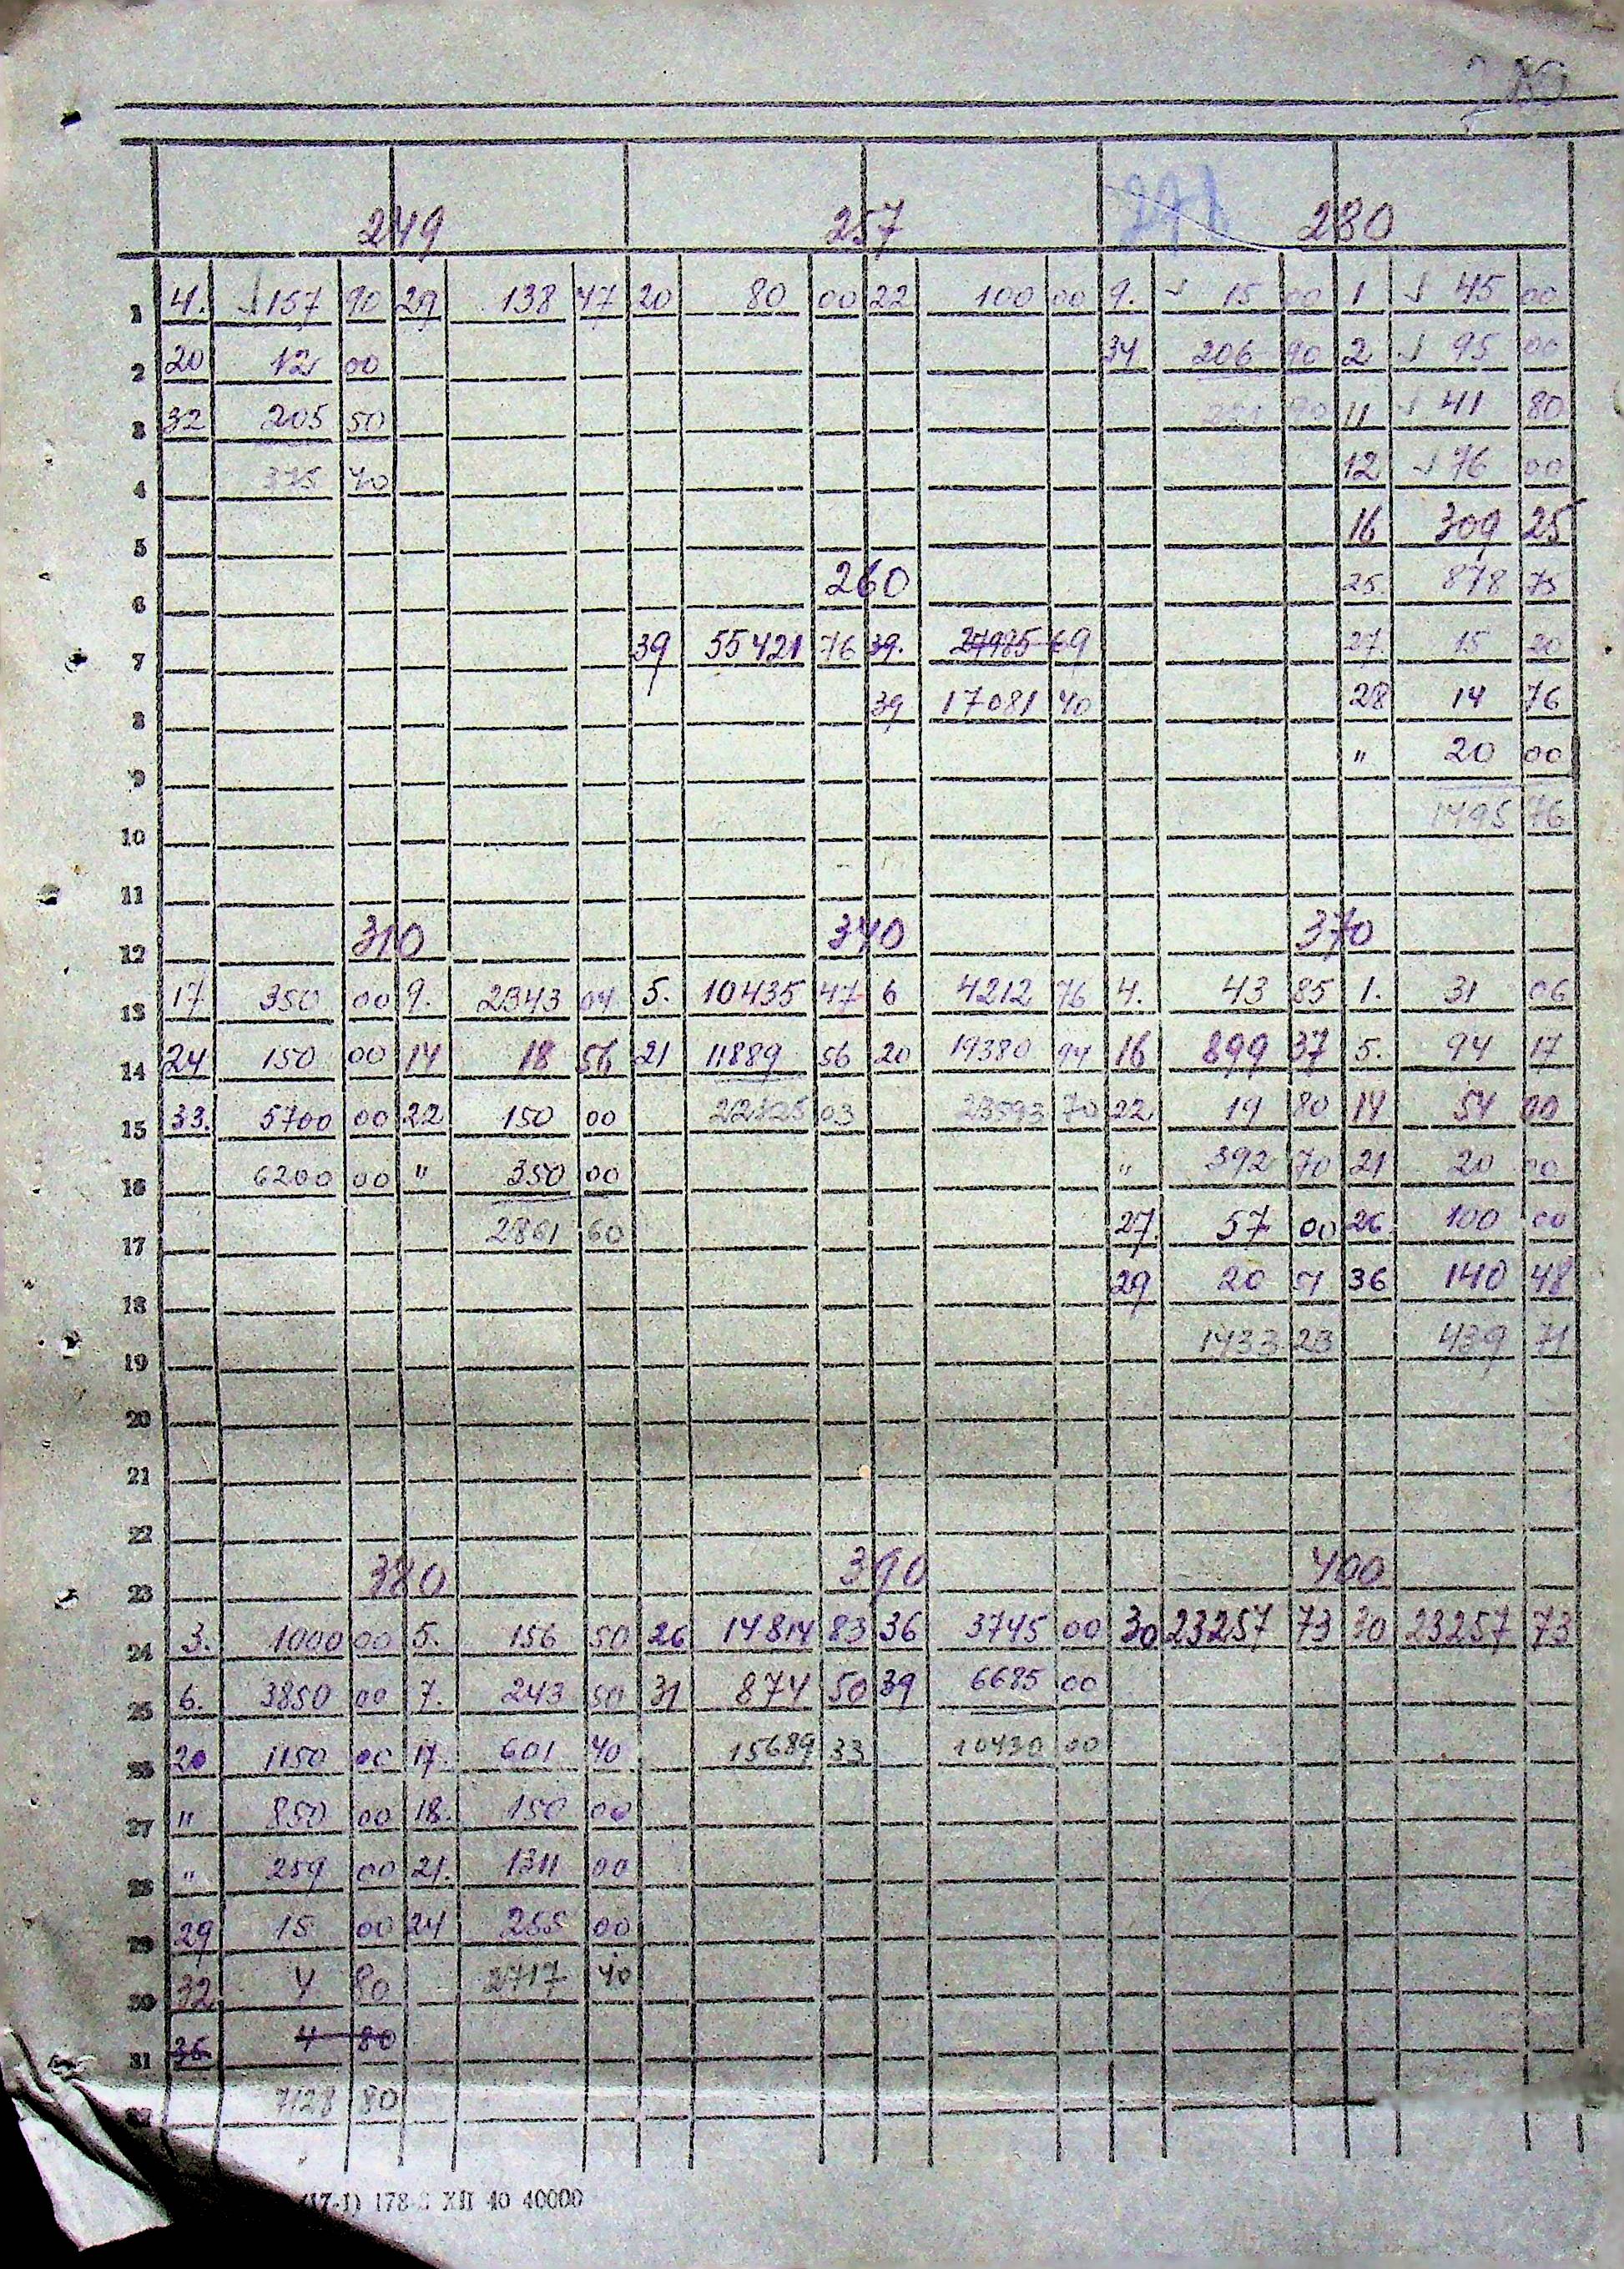 249 257 280
1 4. 157 90 29 138 47 20 80 00 22 100 00 9. 15 00 1 45 00
2 20 12 00 34 206 90 2 95 00
3 32 205 50 221 90 11 41 80
4 375 40 12 76 00
5 16 309 25
6 260 25. 878 75
7 39 55421 76 39. 27985 69 27. 15 20
8 39 17081 40 28 14 76
9 " 20 00
10 1495 76
11
12 310 340 370
13 17 350 00 9. 2343 04 5. 10435 47 6 4212 76 4. 43 85 1. 31 06
14 24 150 00 14 18 56 21 11889 56 20 19380 94 16 899 37 5. 94 17
15 33. 5700 00 22 150 00 22325 03 23593 70 22 19 80 14 54 00
16 6200 00 " 350 00 " 392 70 21 20 00
17 2861 60 27. 57 00 26 100 00
18 29 20 51 36 140 48
19 1433 23 439 71
20
21
22
23 380 390 400
24 3. 1000 00 5. 156 50 26 14814 83 36 3745 00 30 23257 73 30 23257 73
25 6. 3850 00 7. 243 50 31 874 50 39 6685 00
26 20 1150 00 17. 601 40 15689 33 10430 00
27 " 850 00 18. 150 00
28 " 259 00 21. 1311 00
29 29 15 00 24 255 00
30 32 4 80 2717 40
31 36 4 80
7128 80
(17-1) 178 XII 40 40000